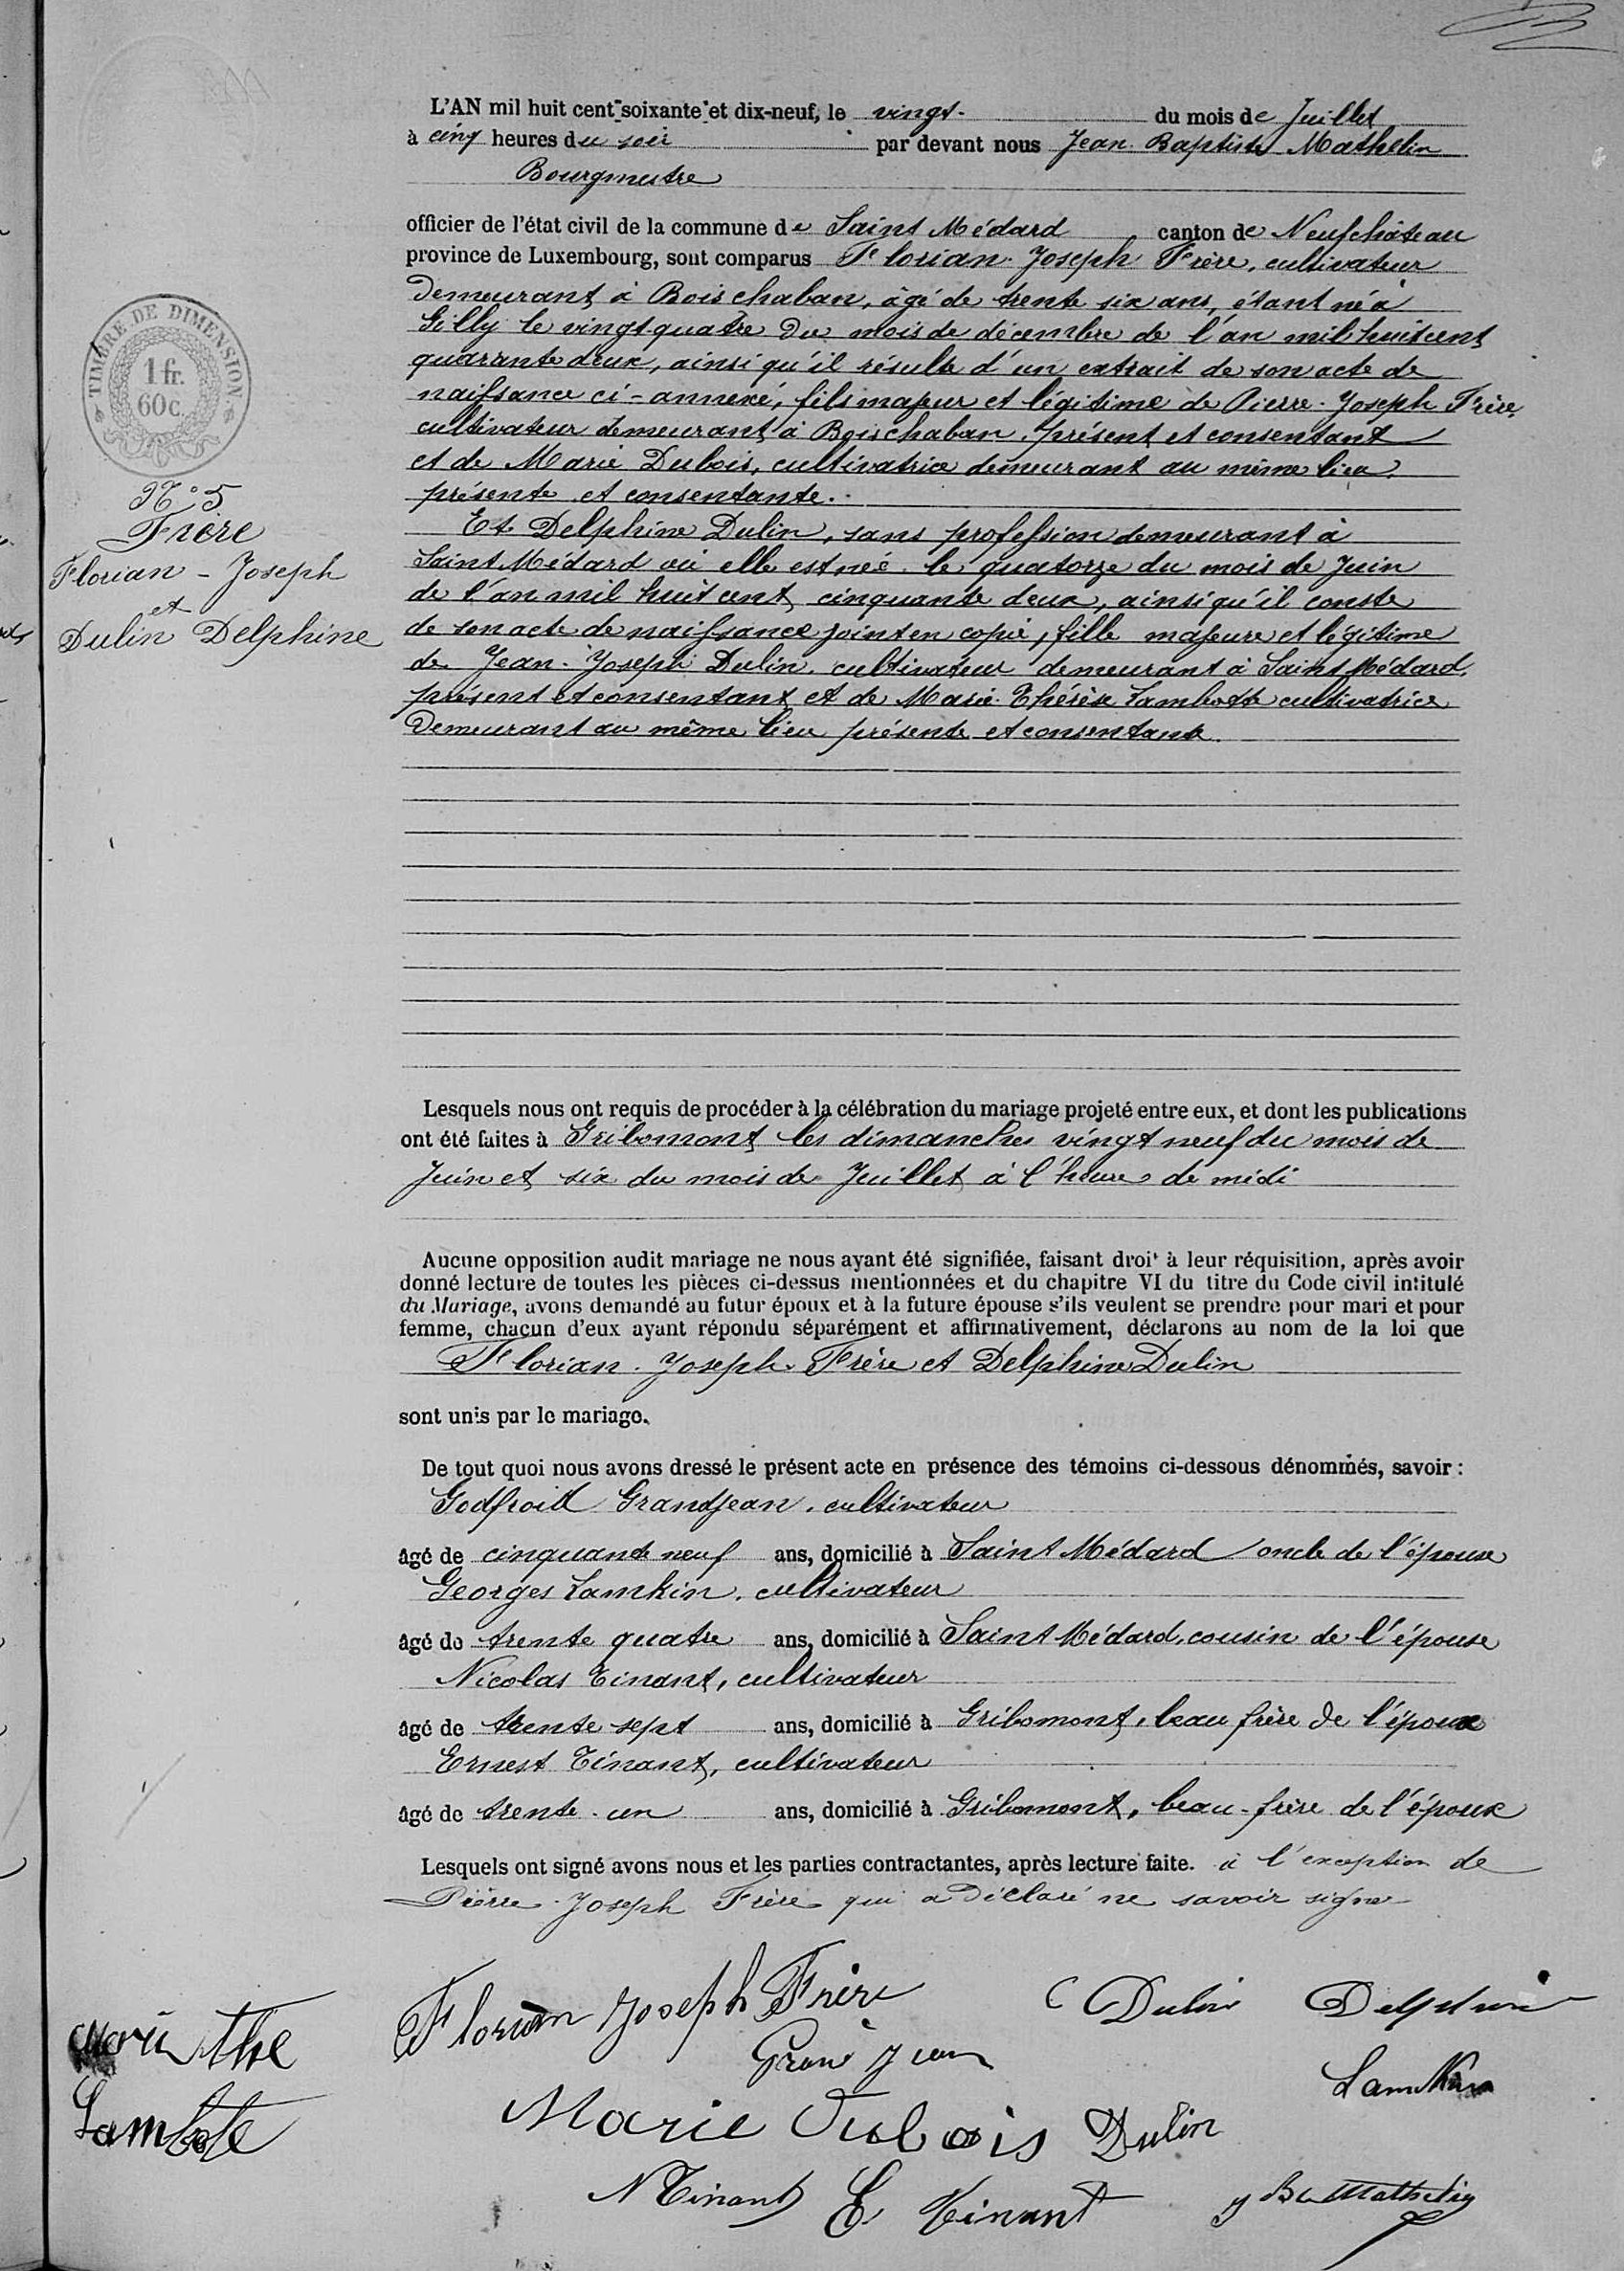 L'AN mil huit cent soixante et dix-neuf, le vingt du mois de Juillet
à cinq heures du soir par devant nous Jean Baptiste Mathelin
Bourgmestre
officier de l'état civil de la commune de Saint Médard canton de Neufchâteau
province de Luxembourg, sont comparus Florian Joseph Frère, cultivateur
demeurant à Boischaban, âgé de trente six ans, étant né à
Gilly le vingt quatre du mois de décembre de l'an mil huit cent
quarante deux, ainsi qu'il résulte d'un extrait de son acte de
naissance ci-annexé, fils majeur et légitime de Pierre-Joseph Frère,
cultivateur demeurant à Boischaban, présent et consentant
et de Marie Dubois, cultivatrice demeurant au même lieu
présente et consentante.
Et Delphine Dulin, sans profession demeurant à
Saint Médard où elle est née le quatorze du mois de Juin
de l'an mil huit cent cinquante deux, ainsi qu'il conste
de son acte de naissance joint en copie, fille majeure et légitime
de Jean-Joseph Dulin, cultivateur demeurant à Saint Médard,
présent et consentant et de Marie Thérèse Lambotte cultivatrice
demeurant au même lieu présente et consentante.
TIMBRE DE DIMENSION
1 fr.
60 c.
N° 5
Frère
Florian - Joseph
et
Dulin Delphine
Lesquels nous ont requis de procéder à la célébration du mariage projeté entre eux, et dont les publications
ont été faites à Gribomont les dimanches vingt neuf du mois de
Juin et six du mois de Juillet à l'heure de midi
Aucune opposition audit mariage ne nous ayant été signifiée, faisant droit à leur réquisition, après avoir
donné lecture de toutes les pièces ci-dessus mentionnées et du chapitre VI du titre du Code civil intitulé
du Mariage, avons demandé au futur époux et à la future épouse s'ils veulent se prendre pour mari et pour
femme, chacun d'eux ayant répondu séparément et affirmativement, déclarons au nom de la loi que
Florian-Joseph Frère et Delphine Dulin
sont unis par le mariage.
De tout quoi nous avons dressé le présent acte en présence des témoins ci-dessous dénommés, savoir :
Godfroid Grandjean, cultivateur
âgé de cinquante neuf ans, domicilié à Saint Médard oncle de l'épouse
Georges Lamkin, cultivateur
âgé de trente quatre ans, domicilié à Saint Médard, cousin de l'épouse
Nicolas Tinant, cultivateur
âgé de trente sept ans, domicilié à Gribomont, beau frère de l'époux
Ernest Tinant, cultivateur
âgé de trente-un ans, domicilié à Gribomont, beau-frère de l'époux
Lesquels ont signé avons nous et les parties contractantes, après lecture faite. à l'exception de
Pierre-Joseph Frère qui a déclaré ne savoir signer
Florian Joseph Frère Dulin Delphine
Marie the Grand jean Lamkin
Lambote Marie Dubois Dulin
N Tinant E Tinant J Bte Mathelin